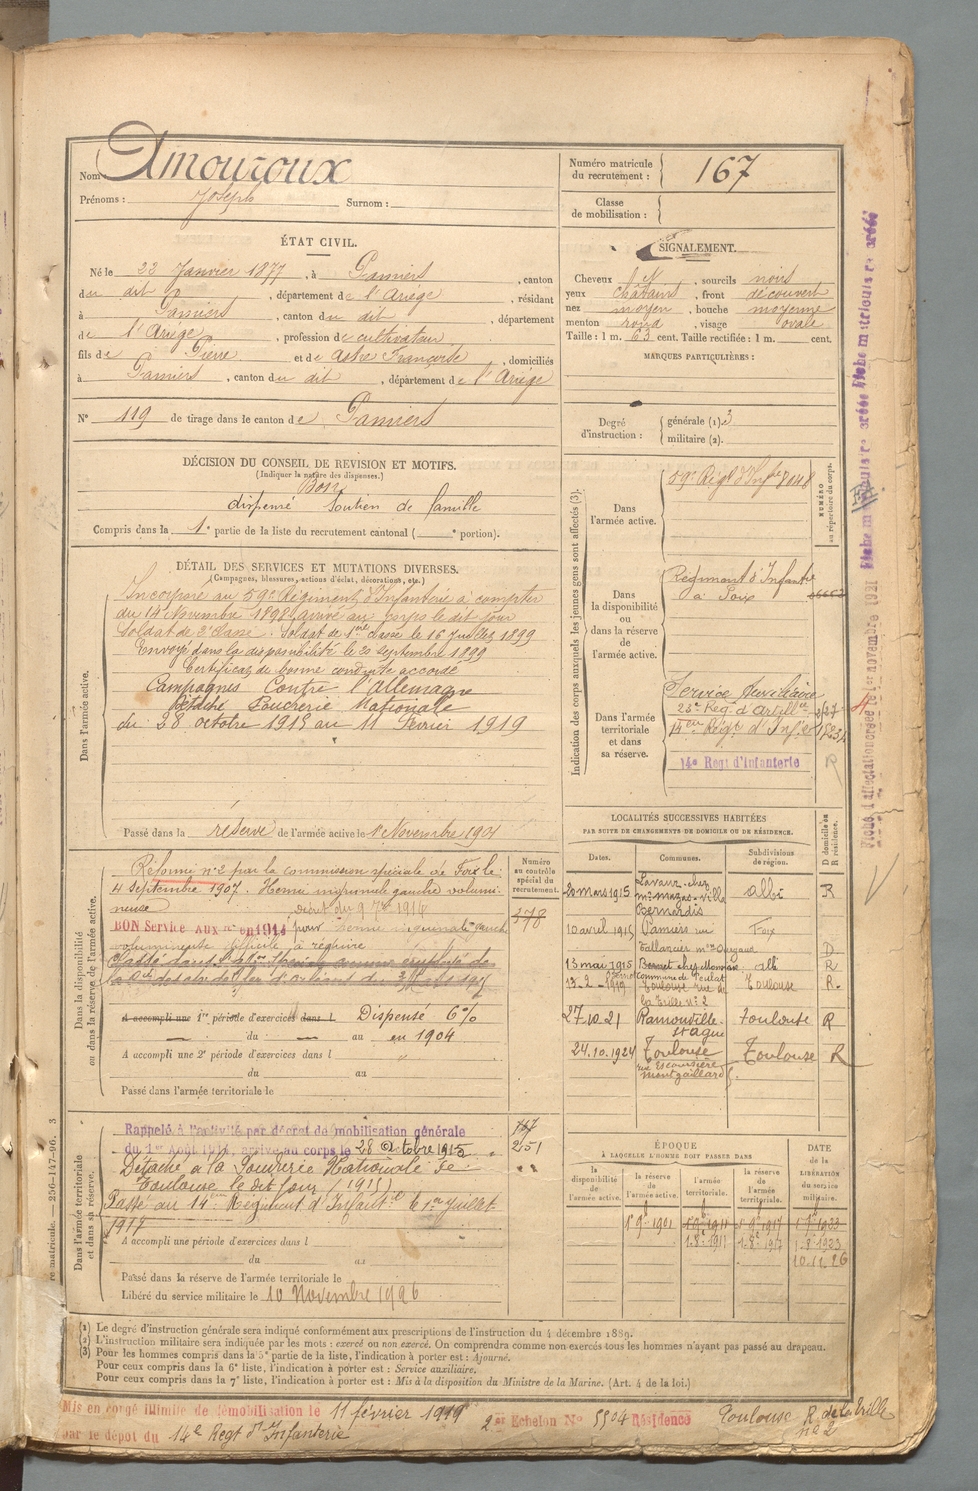 Nom : Amouroux
Prénoms : Joseph Surnom :
Numéro matricule du recrutement : 167
Classe de mobilisation :
ÉTAT CIVIL.
Né le 22 Janvier 1877, à Pamiers, canton
du dit Pamiers, département de l'Ariège, résidant
à Pamiers, canton du dit, département
de l'Ariège, profession de cultivateur
fils de Pierre et de Astre Françoise, domiciliés
à Pamiers, canton du dit, département de l'Ariège
N° 119 de tirage dans le canton de Pamiers
SIGNALEMENT.
Cheveux , sourcils noirs
yeux châtains, front découvert
nez moyen, bouche moyenne
menton rond, visage ovale
Taille : 1 m. 63 cent. Taille rectifiée : 1 m. cent.
MARQUES PARTICULIÈRES :
Degré d'instruction : générale (1) 3
militaire (2).
DÉCISION DU CONSEIL DE REVISION ET MOTIFS.
(Indiquer la nature des dispenses.)
Bon
dispensé Soutien de famille
Compris dans la 1e partie de la liste du recrutement cantonal ( e portion).
DÉTAIL DES SERVICES ET MUTATIONS DIVERSES.
(Campagnes, blessures, actions d'éclat, décorations, etc.)
Dans l'armée active.
Incorporé au 59e Régiment d'Infanterie à compter
du 14 Novembre 1898 arrivé au corps le dit jour
Soldat de 2e classe. Soldat de 1ère classe le 16 Juillet 1899
Envoyé dans la disponibilité le 20 septembre 1899
Certificat de bonne conduite accordé
Campagnes Contre l'Allemagne
Détaché Poudrerie Nationale
du 28 octobre 1915 au 11 Février 1919
Passé dans la réserve de l'armée active le 1er Novembre 1901
Indication des corps auxquels les jeunes gens sont affectés (3).
NUMÉRO au répertoire du corps.
Dans l'armée active.
59e Régt d'Infie 8048
Dans la disponibilité ou dans la réserve de l'armée active.
Régiment d'Infantie
à Foix
Dans l'armée territoriale et dans sa réserve.
Service Auxiliaire
23e Reg. d'Artillie
14eme Régt d'Infie
14e Regt d'Infanterie
R
Dans la disponibilité ou dans la réserve de l'armée active.
Numéro au contrôle spécial du recrutement.
378
Réformé n°2 par la commission spéciale de Foix le
4 Septembre 1907. Hernie inguinale gauche volumi
neuse
BON Service Aux en 1914 pour hernie inguinale gauche
volumineuse difficile à réduire
A accompli une 1re période d'exercices dans l Dispensé 6%
du au en 1904
A accompli une 2e période d'exercices dans l
du au
Passé dans l'armée territoriale le
LOCALITÉS SUCCESSIVES HABITÉES
PAR SUITE DE CHANGEMENTS DE DOMICILE OU DE RÉSIDENCE.
Dates. Communes. Subdivisions de région. D domicile ou R résidence.
20 mars 1915 Lavaur chez albi R
Bernardis
10 avril 1915 Pamiers Foix D
13 mai 1915 albi R
13-2-1919 Toulouse rue de la Trille n° 2 Toulouse R.
27.10.21 Ramonville St Agne Toulouse R
24.10.1924 Toulouse Toulouse R
Montgaillard
Dans l'armée territoriale et dans sa réserve.
Rappelé à l'activité par décret de mobilisation générale
du 1er Août 1914, arrivé au corps le 28 Octobre 1915
251
Détaché à la Poudrerie Nationale de
Toulouse le dit jour
Passé au 14eme Régiment d'Infantie le 1er Juillet
1917
A accompli une période d'exercices dans l
du au
Passé dans la réserve de l'armée territoriale le
Libéré du service militaire le 10 Novembre 1926
ÉPOQUE
À LAQUELLE L'HOMME DOIT PASSER DANS
DATE de la LIBÉRATION du service militaire.
la disponibilité de l'armée active. la réserve de l'armée active. l'armée territoriale. la réserve de l'armée territoriale.
1 9e 1901 1 9e 1911 1 9e 1917 1 9e 1923
1.8e 1911 1.8e 1917 1.8e 1923
10.11.26
(1) Le degré d'instruction générale sera indiqué conformément aux prescriptions de l'instruction du 4 décembre 1889.
(2) L'instruction militaire sera indiquée par les mots : exercé ou non exercé. On comprendra comme non exercés tous les hommes n'ayant pas passé au drapeau.
(3) Pour les hommes compris dans la 5e partie de la liste, l'indication à porter est : Ajourné.
Pour ceux compris dans la 6e liste, l'indication à porter est : Service auxiliaire.
Pour ceux compris dans la 7e liste, l'indication à porter est : Mis à la disposition du Ministre de la Marine. (Art. 4 de la loi.)
Mis en congé illimité de démobilisation le 11 février 1919 2e Echelon N° 5504 Résidence Toulouse R de la Trille
par le dépôt du 14e Regt d'Infanterie n° 2
re matricule. — 256-147-96. 3
Fiche d'affectation créée le 1er novembre 1921 Fiche matriculaire créée